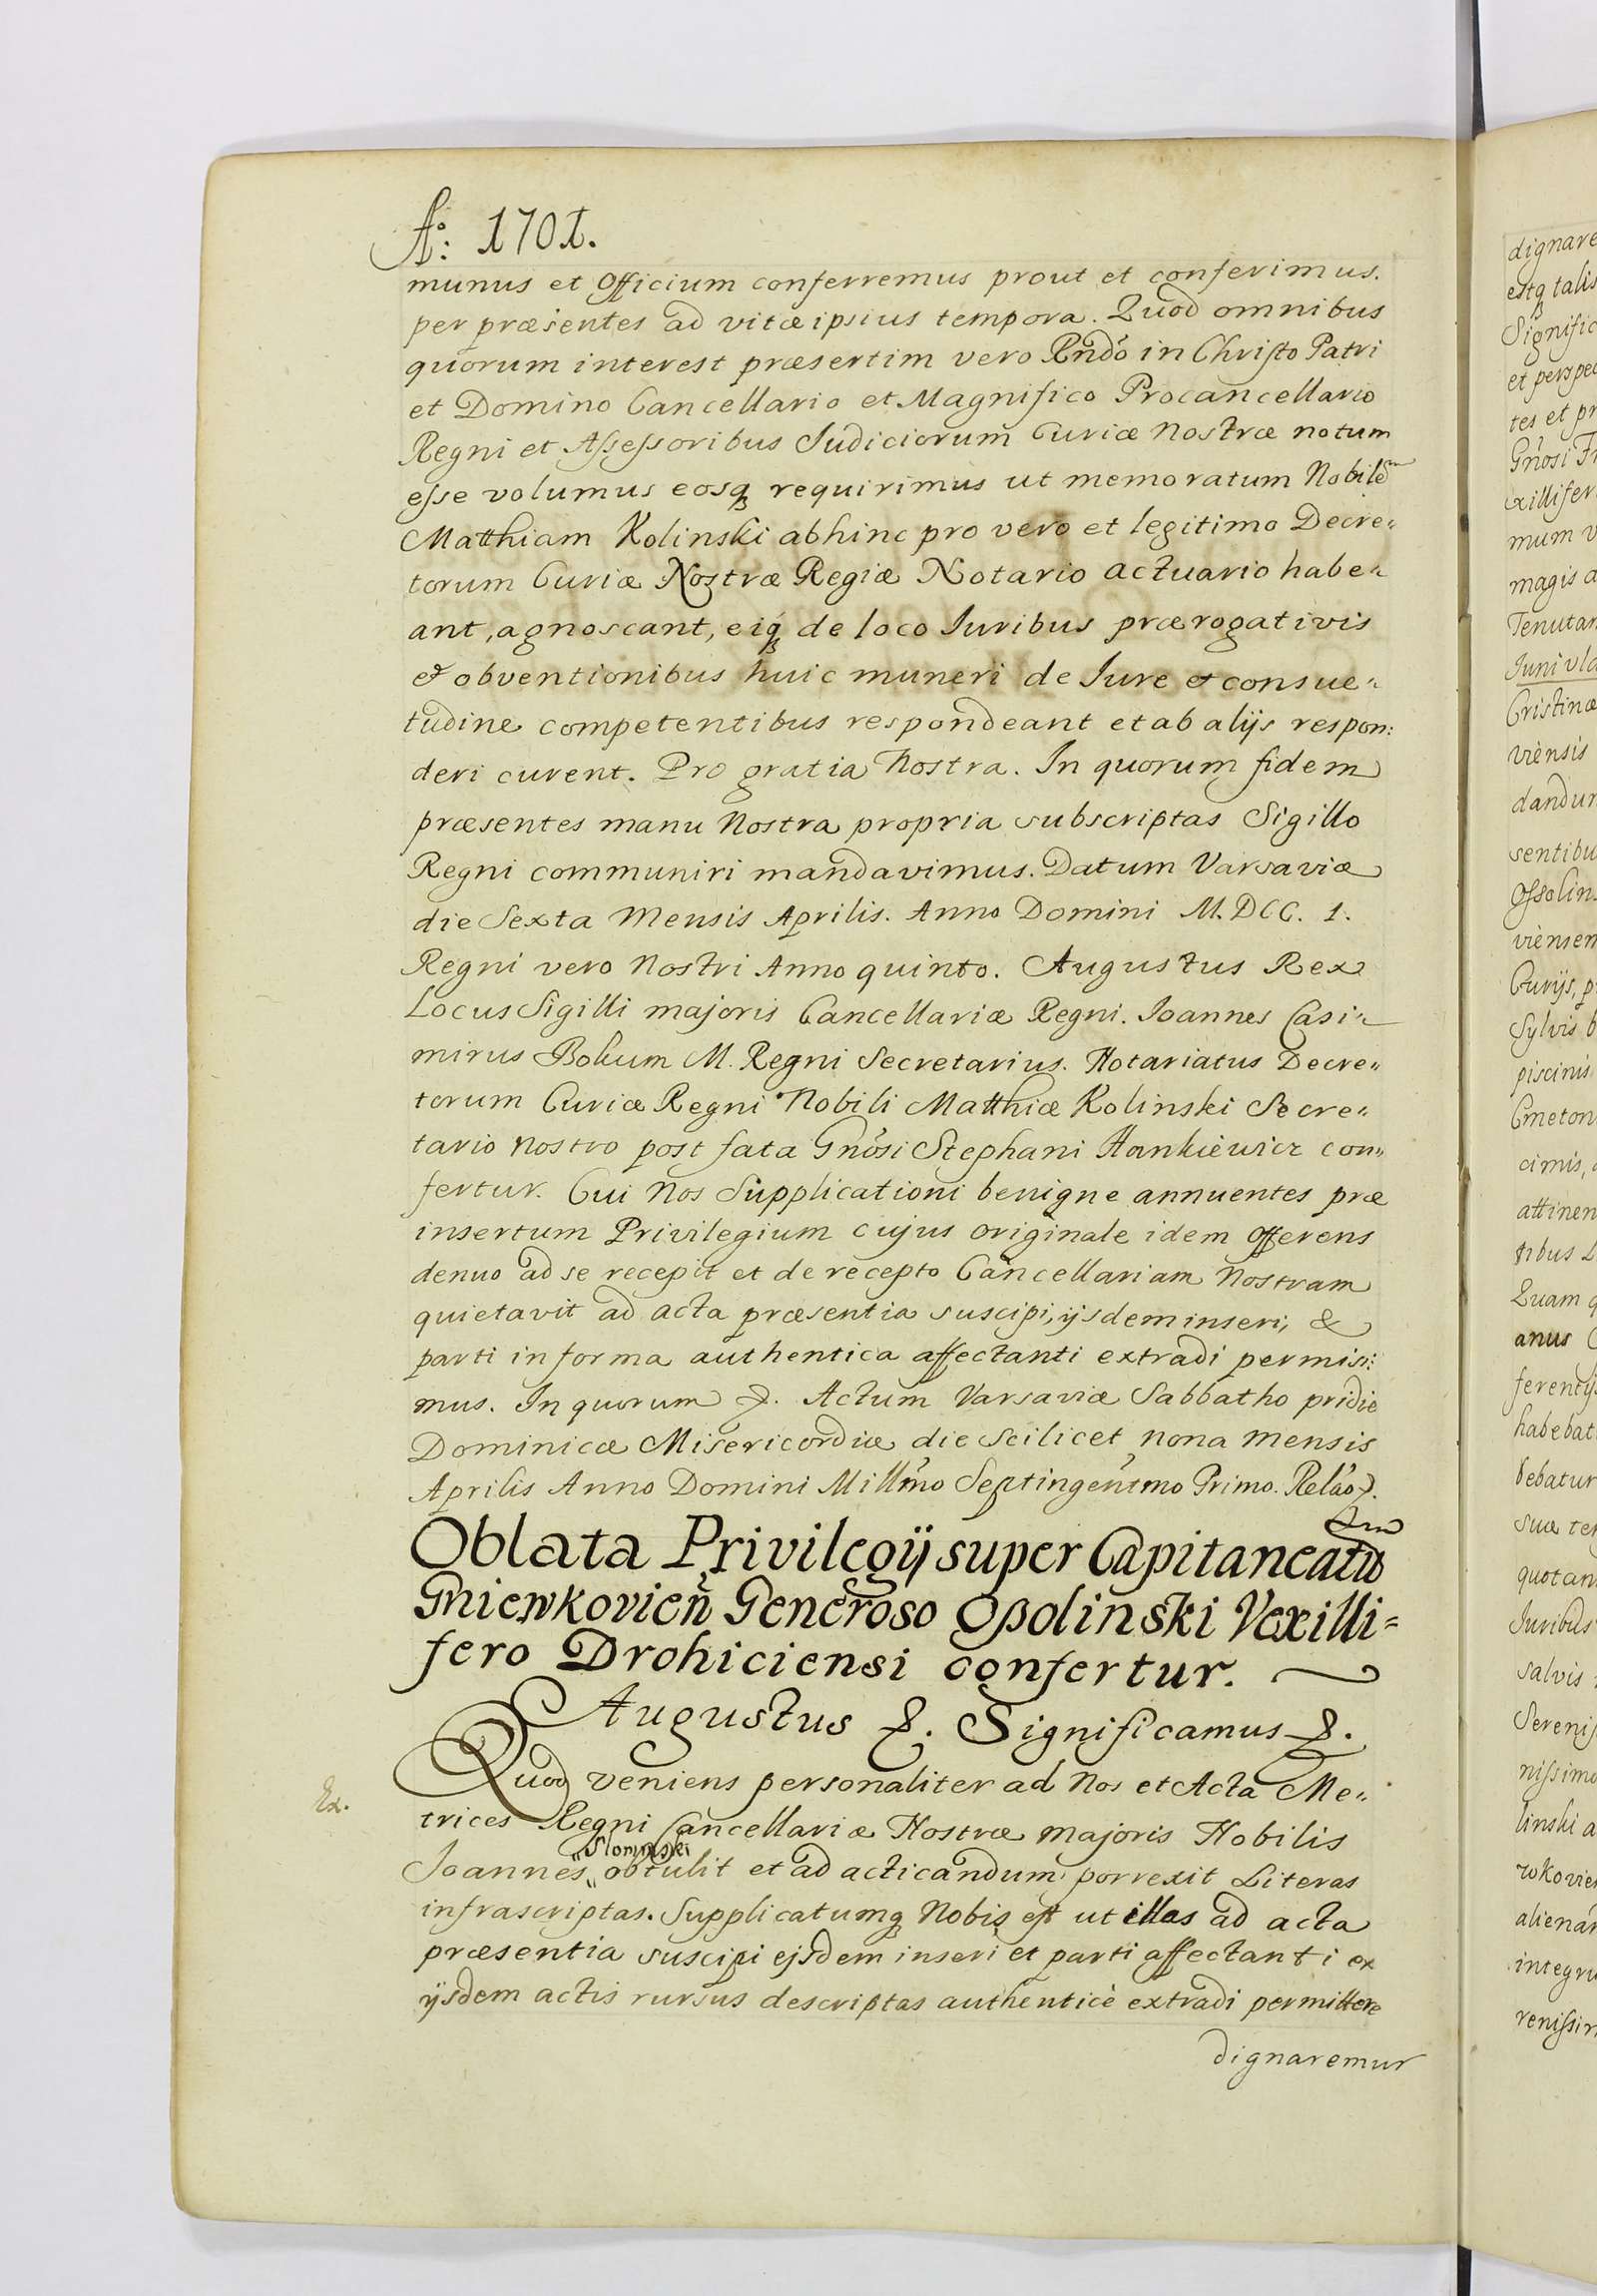 Aº: 1701.
munus et Officium conferremus prout et conferimus.
per præsentes ad vitæ ipsius tempora. Quod omnibus
quorum interest præsertim vero Rndo in Christo Patri
et Domino Cancellario et Magnifico Procancellario
Regni et Assessoribus Iudiciorum Curiæ Nostræ notum
esse volumus eosq requirimus ut memoratum Nobilem
Matthiam Kolinski abhinc pro vero et legitimo Decre„
torum Curiæ Nostræ Regiæ Notario actuario habe„
ant, agnoscant, eiq de loco Iuribus prærogativis
& obventionibus huic muneri de Iure & consue„
tudine competentibus respondeant et ab alijs respon:
deri curent. Pro gratia Nostra. In quorum fidem
præsentes manu Nostra propria subscriptas Sigillo
Regni communiri mandavimus. Datum Varsaviæ
die Sexta Mensis Aprilis. Anno Domini M.DCC. 1.
Regni vero Nostri Anno quinto. Augustus Rex
Locus Sigilli majoris Cancellariæ Regni. Ioannes Casi„
mirus Bokum M. Regni Secretarius. Notariatus Decre„
torum Curiæ Regni Nobili Matthiæ Kolinski Secre„
tario nostro post fata Gnosi Stephani Hankiewicz con„
fertur. Cui Nos Supplicationi benigne annuentes præ
insertum Privilegium cujus originale idem Offerens
denuo ad se recepit et de recepto Cancellariam Nostram
quietavit ad acta præsentia suscipi, ijsdem inseri, &
parti in forma authentica affectanti extradi permisi:
mus. In quorum &. Actum Varsaviæ Sabbatho pridie
Dominicæ Misericordiæ die Scilicet nona mensis
Aprilis Anno Domini Millmo Septingenmo Primo. Relao &.
Oblata Privilegij super Capitaneatu
Gniewkovien Generoso Ossolinski Vexilli=
fero Drohiciensi confertur.
Augustus &. Significamus &.
Quod veniens personaliter ad Nos et Acta Me„
Ex.
trices Regni Cancellariæ Nostræ Majoris Nobilis
„Slominski
Ioannes„ obtulit et ad acticandum porrexit Literas
infrascriptas. Supplicatumq Nobis est ut illas ad acta
præsentia suscipi ejsdem inseri et parti affectanti ex
ijsdem actis rursus descriptas authenticè extradi permittere
dignaremur
dignare
estq talis
Signific
et perspec
tes et pr
Gnosi Fr
xillifer
mum v
magis a
Tenutar
Iuni vla
Cristinæ
viensis
dandum
sentibu
Ossolin
viensem
Curijs, p
Sylvis b
piscinis
Cmeton
cimis,
attinen
tibus
Quam q
anus
ferentijs
habebat
bebatur
suæ te
quotan
Iuribus
salvis
Sereniss
nissimo
linski a
wkovien
alienan
integru
renissim